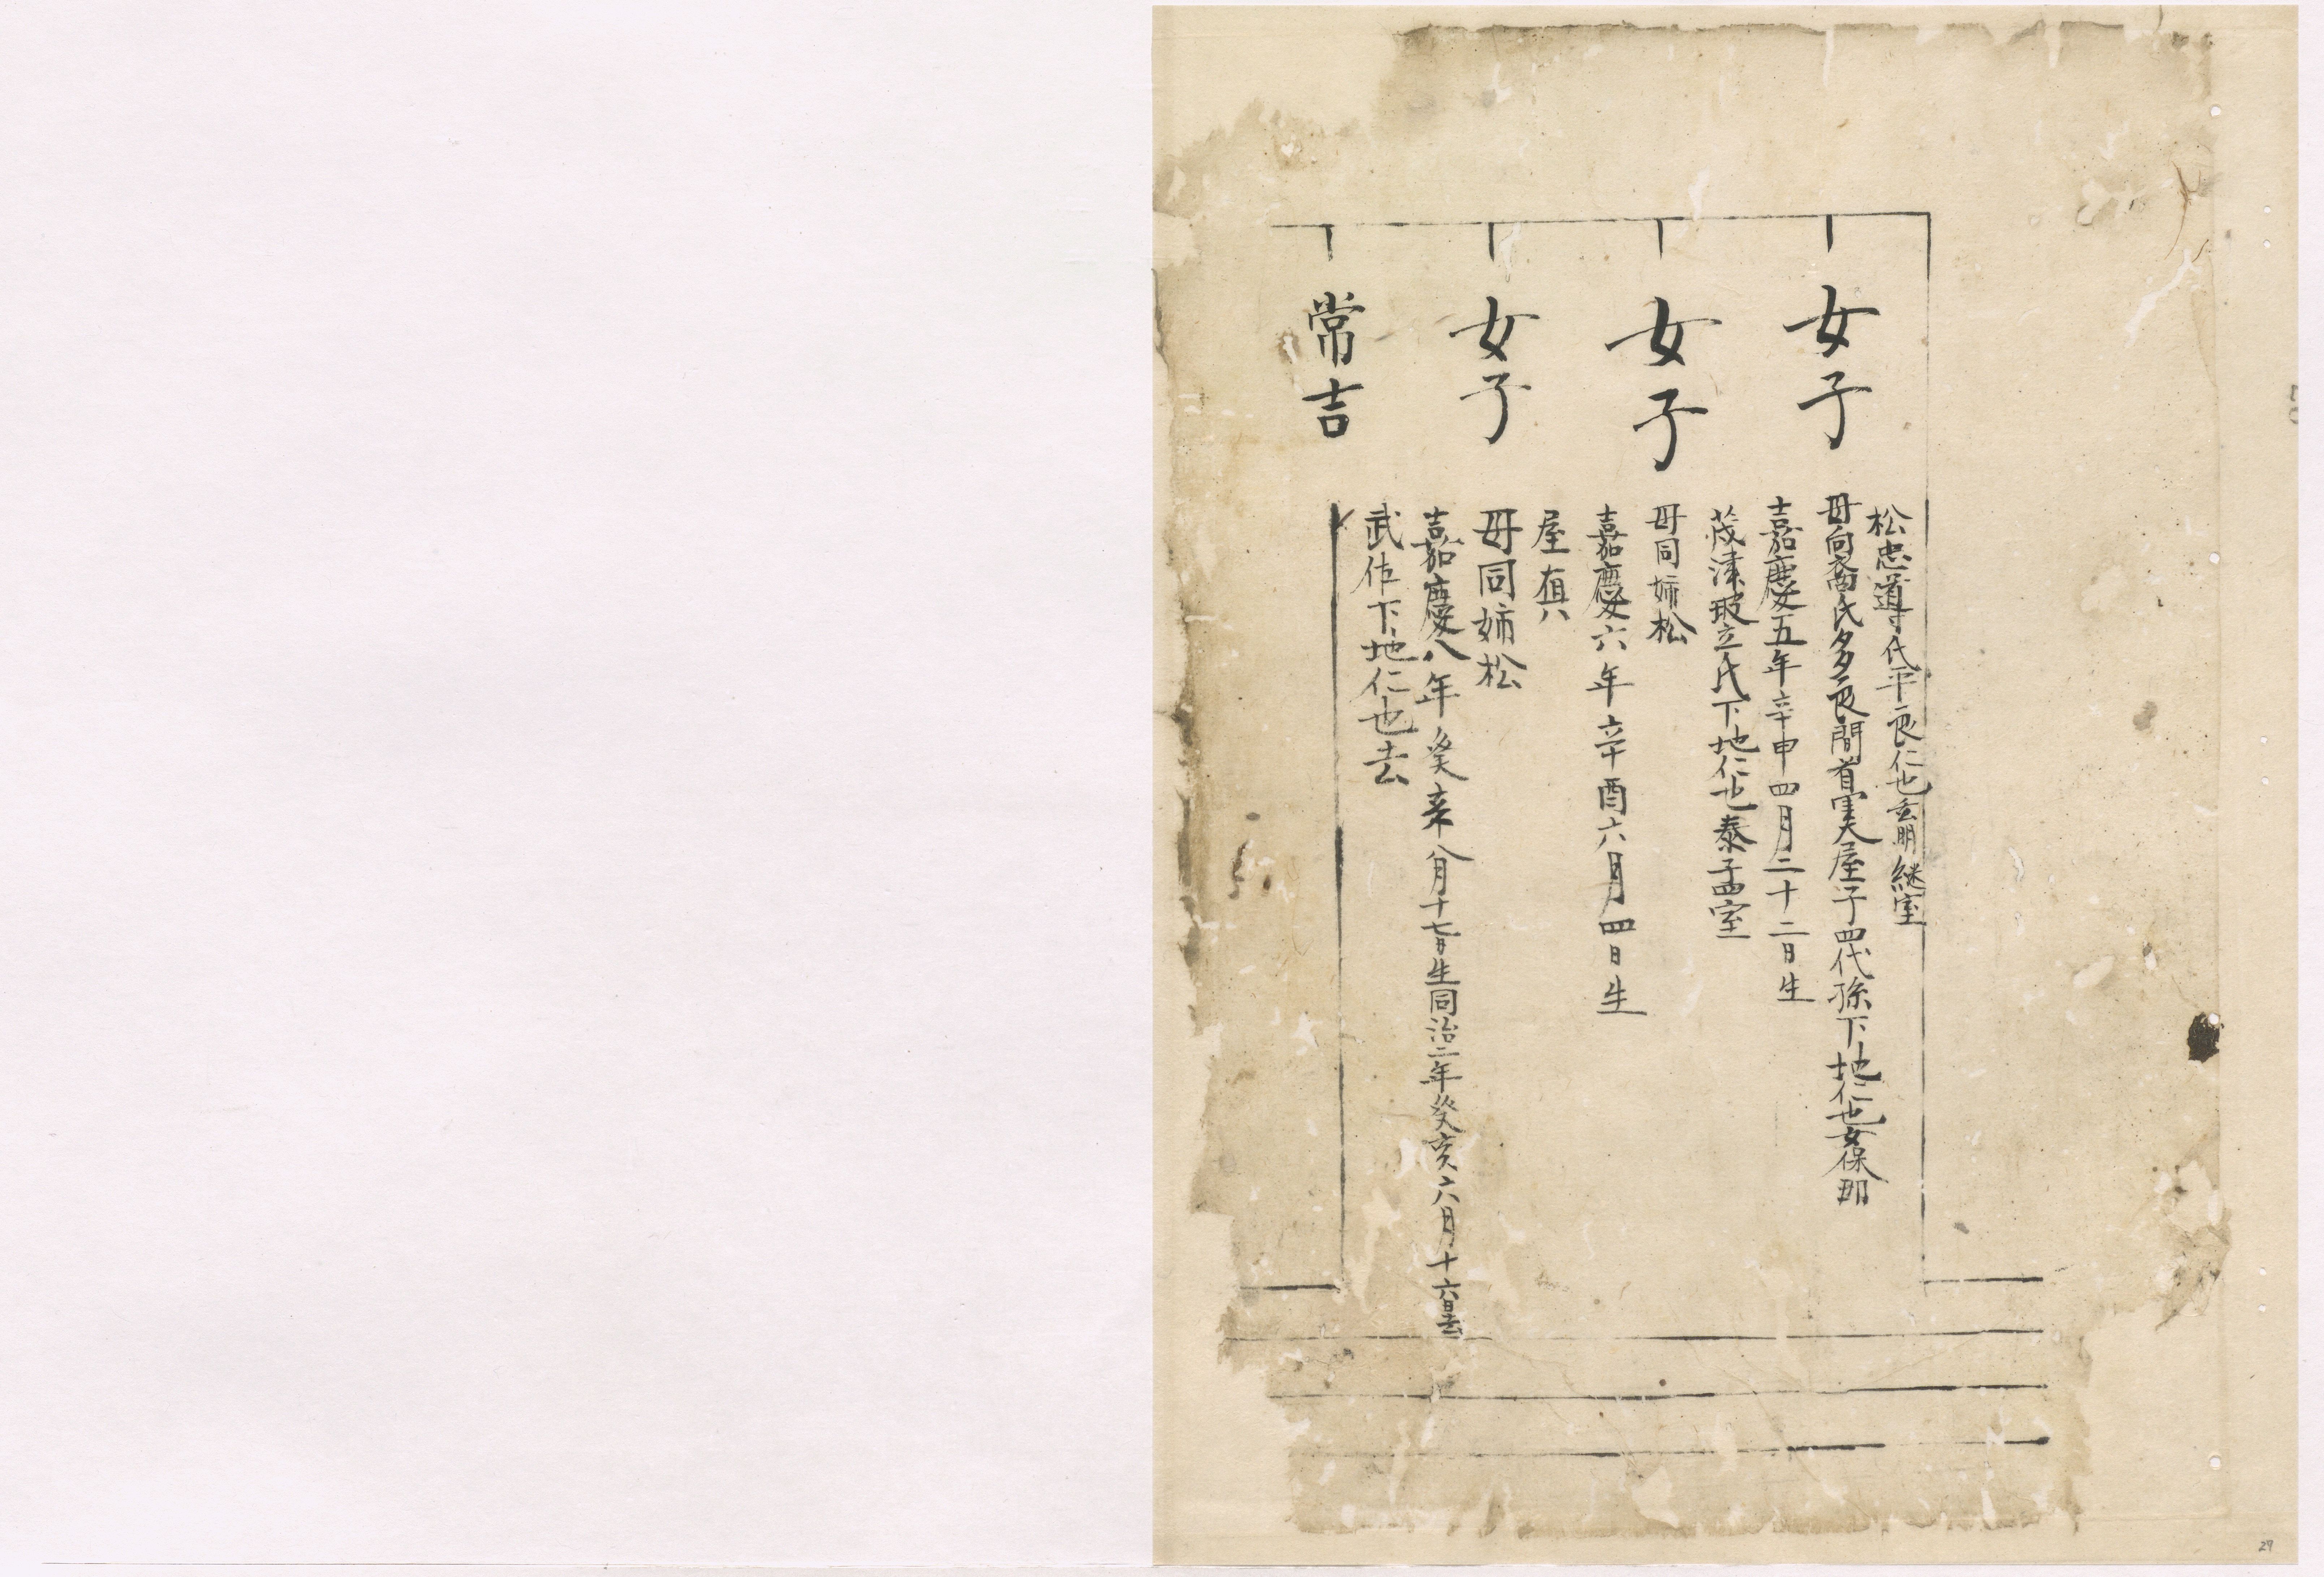 松忠導氏平良仁也玄明継室
母向裔氏多良間首里大屋子四代孫下地仁也女保那
女子
嘉慶五年辛申四月二十二日生
茂津破立氏下地仁也泰孟室
母同姉松
女子
嘉慶六年辛酉六月四日生
屋
母同姉松
女子
嘉慶八年癸亥八月十七日生同治二年癸亥六月十六日去
武佐下地仁也去
常吉
27